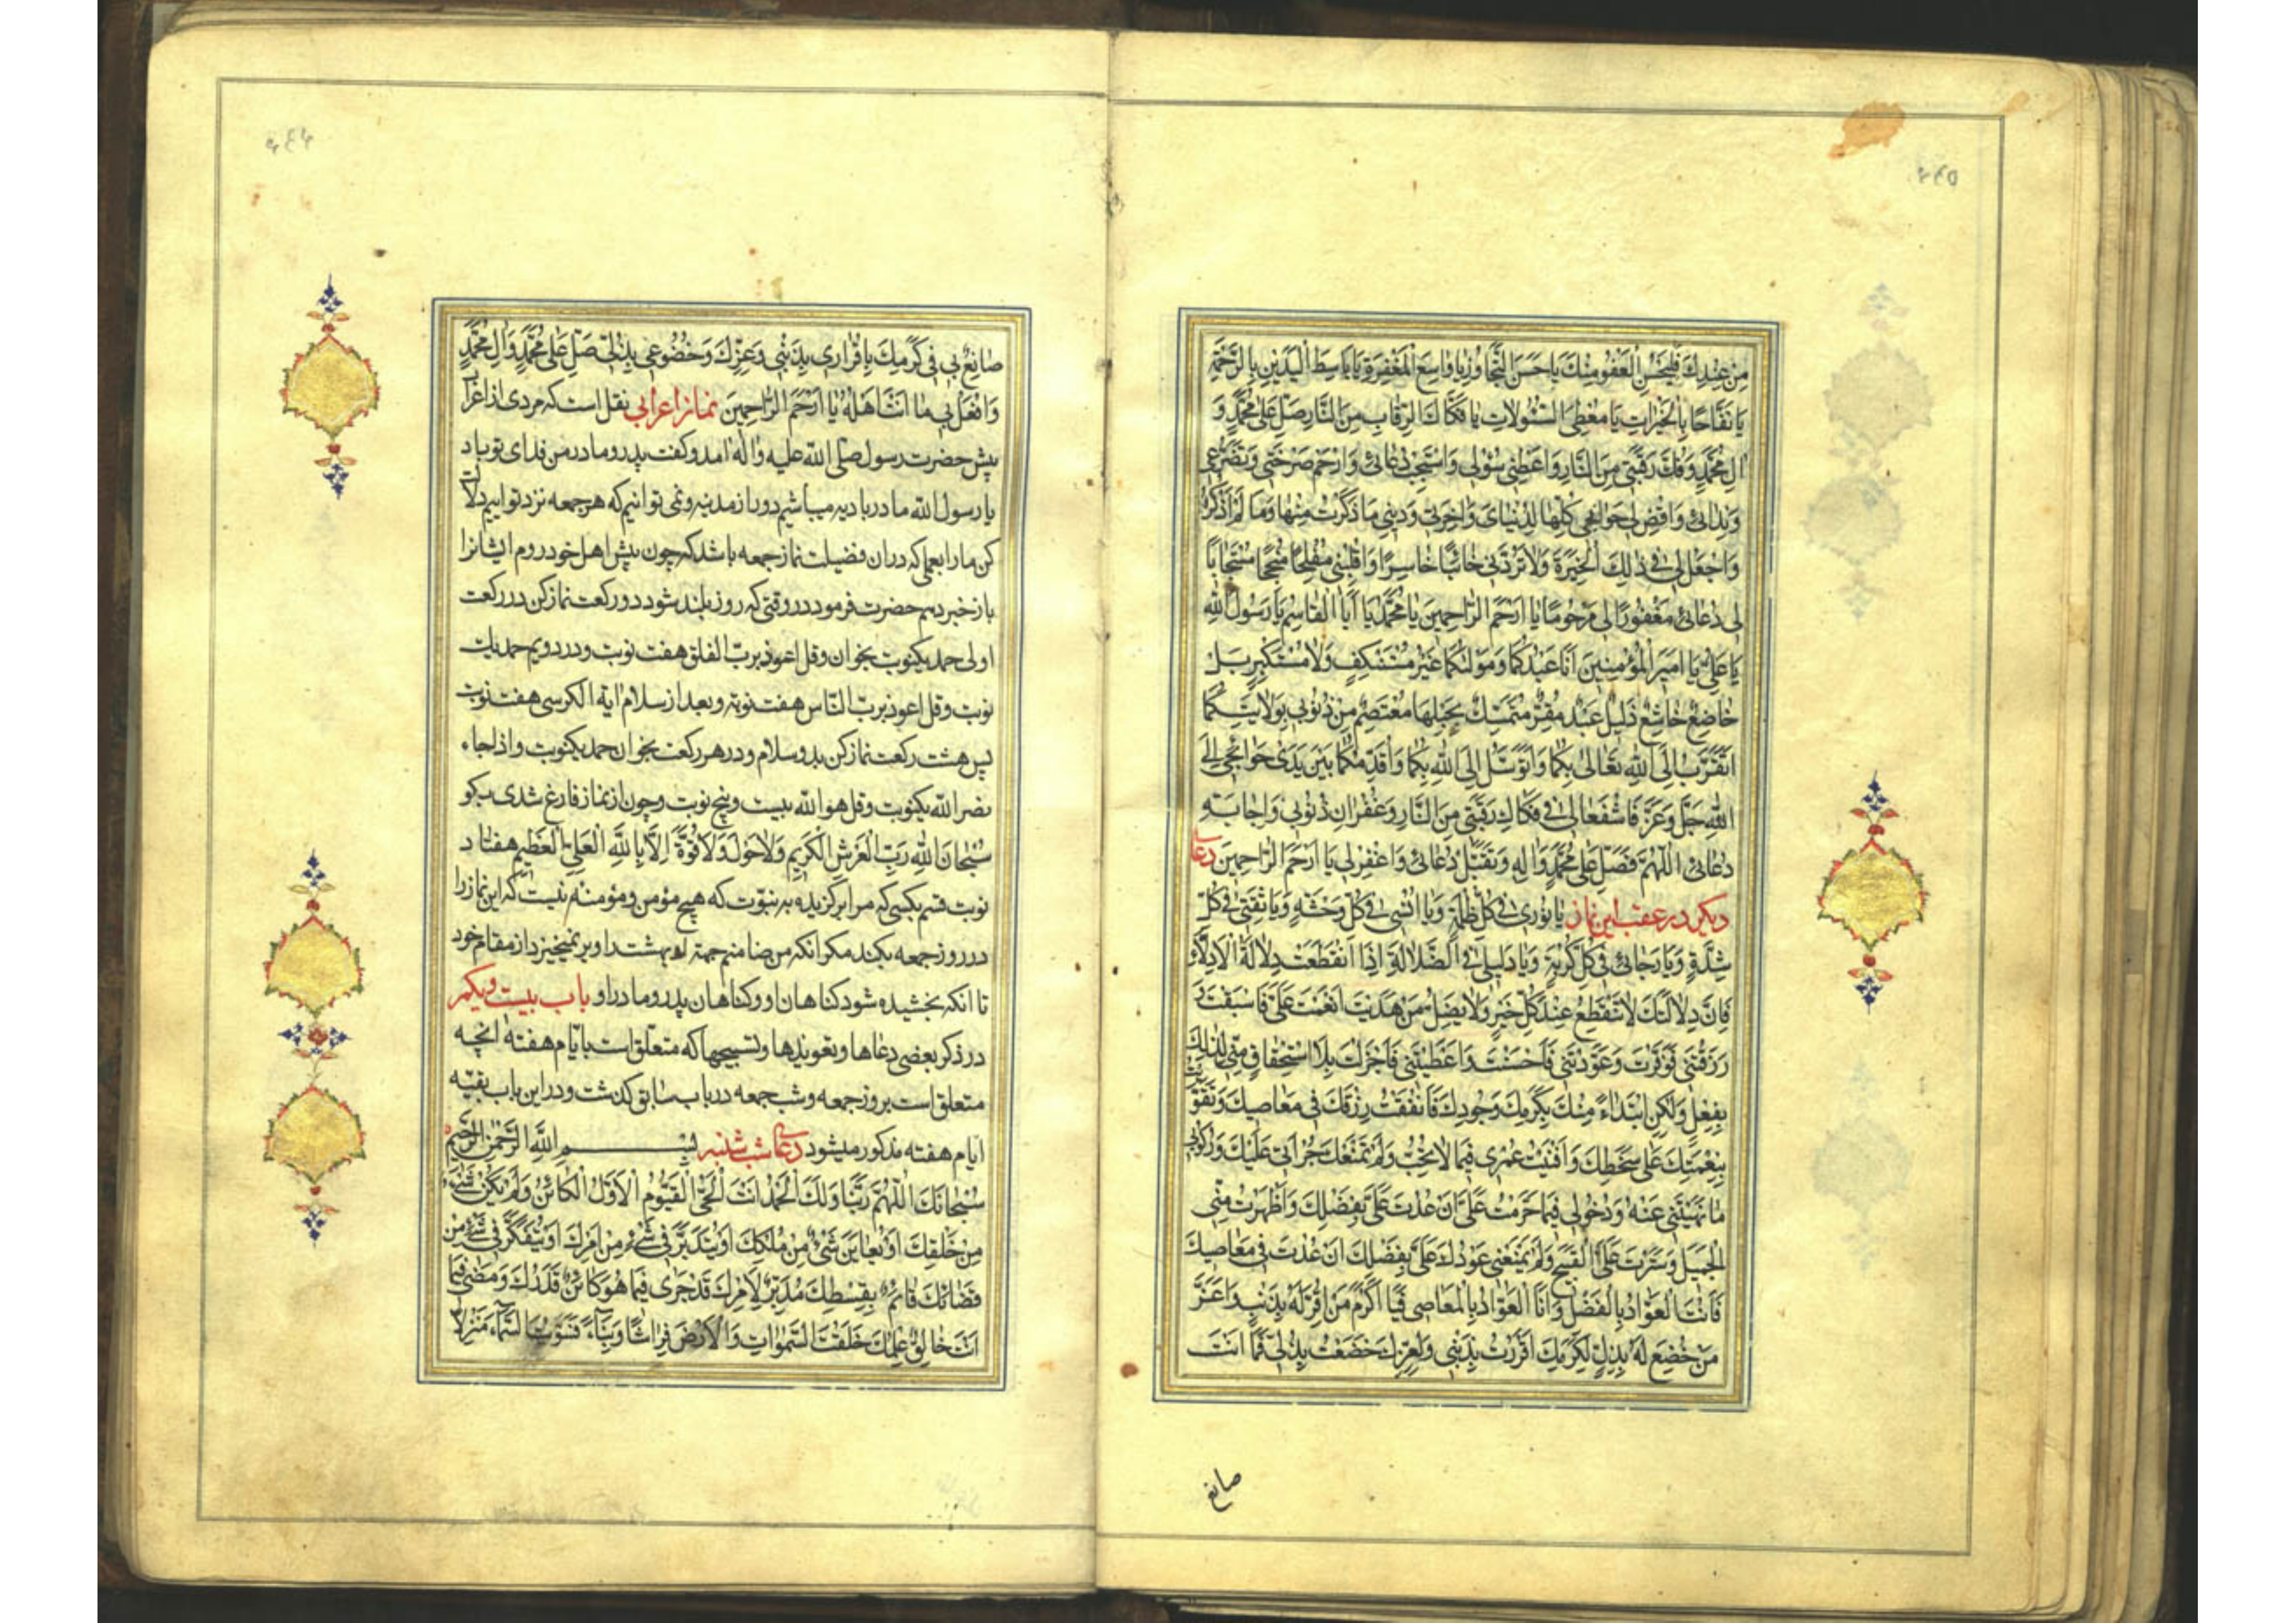 ٤٤٥
مِنْ عِنْدِكَ فَلْيَحْسُنِ الْعَفْوُ مِنْكَ يَا حَسَنَ التَّجَاوُزِ يَا وَاسِعَ الْمَغْفِرَةِ يَا بَاسِطَ الْيَدَيْنِ بِالرَّحْمَةِ
يَا نَفَّاحًا بِالْخَيْرَاتِ يَا مُعْطِيَ السُّؤُلَاتِ يَا فَكَّاكَ الرِّقَابِ مِنَ النَّارِ صَلِّ عَلَى مُحَمَّدٍ وَ
الِ مُحَمَّدٍ وَفُكَّ رَقَبَتِي مِنَ النَّارِ وَاَعْطِنِي سُؤْلِي وَاسْتَجِبْ دُعَائِي وَارْحَمْ صَرْخَتِي وَتَضَرُّعِي
وَنِدَائِي وَاقْضِ لِي حَوَائِجِي كُلَّهَا لِدُنْيَايَ وَاخِرَتِي وَدِينِي مَا ذَكَرْتُ مِنْهَا وَمَا لَمْ اَذْكُرْ
وَاجْعَلْ لِي فِي ذَلِكَ الْخِيَرَةَ وَلَا تَرُدَّنِي خَائِبًا خَاسِرًا وَاقْلِبْنِي مُفْلِحًا مُنْجِحًا مُسْتَجَابًا
لِي دُعَائِي مَغْفُورًا لِي مَرْحُومًا يَا اَرْحَمَ الرَّاحِمِينَ يَا مُحَمَّدُ يَا اَبَا الْقَاسِمِ يَا رَسُولَ اللهِ
يَا عَلِيُّ يَا اَمِيرَ الْمُؤْمِنِينَ اَنَا عَبْدُكُمَا وَمَوْلَاكُمَا غَيْرُ مُسْتَنْكِفٍ وَلَا مُسْتَكْبِرٍ بَلْ
خَاضِعٌ خَاشِعٌ ذَلِيلٌ عَبْدٌ مُقِرٌّ مُتَمَسِّكٌ بِحَبْلِهَا مُعْتَصِمٌ مِنْ ذُنُوبِي بِوَلَايَتِكُمَا
اَتَقَرَّبُ اِلَى اللهِ تَعَالَى بِكُمَا وَاَتَوَسَّلُ اِلَى اللهِ بِكُمَا وَاُقَدِّمُكُمَا بَيْنَ يَدَيْ حَوَائِجِي اِلَى
اللهِ جَلَّ وَعَزَّ فَاشْفَعَا لِي فِي فَكَاكِ رَقَبَتِي مِنَ النَّارِ وَغُفْرَانِ ذُنُوبِي وَاِجَابَةِ
دُعَائِي اَللّٰهُمَّ فَصَلِّ عَلَى مُحَمَّدٍ وَالِهِ وَتَقَبَّلْ دُعَائِي وَاغْفِرْ لِي يَا اَرْحَمَ الرَّاحِمِينَ دعای
دیکر در عقب این نماز يَا نُورِي فِي كُلِّ ظُلْمَةٍ وَيَا اُنْسِي فِي كُلِّ وَحْشَةٍ وَيَا ثِقَتِي فِي كُلِّ
شِدَّةٍ وَيَا رَجَائِي فِي كُلِّ كُرْبَةٍ وَيَا دَلِيلِي فِي الضَّلَالَةِ اِذَا انْقَطَعَتْ دِلَالَةُ الْاَدِلَّاءِ
فَاِنَّ دِلَالَتَكَ لَا تَنْقَطِعُ عِنْدَ كُلِّ خَيْرٍ وَلَا يَضِلُّ مَنْ هَدَيْتَ اَنْعَمْتَ عَلَيَّ فَاَسْبَغْتَ
رَزَقْتَنِي فَوَفَّرْتَ وَعَوَّدْتَنِي فَاَحْسَنْتَ وَاَعْطَيْتَنِي فَاَجْزَلْتَ بِلَا اسْتِحْقَاقٍ مِنِّي لِذَلِكَ
بِفِعْلٍ وَلَكِنِ ابْتِدَاءً مِنْكَ بِكَرَمِكَ وَجُودِكَ فَاَنْفَقْتُ رِزْقَكَ فِي مَعَاصِيكَ وَتَقَوَّيْتُ
بِنِعْمَتِكَ عَلَى سَخَطِكَ وَاَفْنَيْتُ عُمْرِي فِيمَا لَا تُحِبُّ وَلَمْ تَمْنَعْكَ جُرْاَتِي عَلَيْكَ وَرُكُوبِي
مَا نَهَيْتَنِي عَنْهُ وَدُخُولِي فِيمَا حَرَّمْتَ عَلَيَّ اَنْ عُدْتَ عَلَيَّ بِفَضْلِكَ وَاَظْهَرْتَ مِنِّي
الْجَمِيلَ وَسَتَرْتَ عَلَيَّ الْقَبِيحَ وَلَمْ يَمْنَعْنِي عَوْدُكَ عَلَيَّ بِفَضْلِكَ اَنْ عُدْتُ فِي مَعَاصِيكَ
فَاَنْتَ الْعَوَّادُ بِالْفَضْلِ وَاَنَا الْعَوَّادُ بِالْمَعَاصِي فَيَا اَكْرَمَ مَنْ اُقِرَّ لَهُ بِذَنْبٍ وَاَعَزَّ
مَنْ خُضِعَ لَهُ بِذُلٍّ لِكَرَمِكَ اَقْرَرْتُ بِذَنْبِي وَلِعِزِّكَ خَضَعْتُ بِذُلِّي فَمَا اَنْتَ
صانع
٤٤٦
صَانِعٌ بِي فِي كَرَمِكَ بِاِقْرَارِي بِذَنْبِي وَعِزِّكَ وَخُضُوعِي بِذُلِّي صَلِّ عَلَى مُحَمَّدٍ وَالِ مُحَمَّدٍ
وَافْعَلْ بِي مَا اَنْتَ اَهْلُهُ يَا اَرْحَمَ الرَّاحِمِينَ نماز اعرابی نقل است که مردی از اعراب
پیش حضرت رسول صلی الله علیه واله امد و کفت پدر و مادر من فدای تو باد
یا رسول الله ما در بادیه میباشیم دور از مدینه و نمی توانیم که هر جمعه نزد تو اییم دلالت
کن ما را بعملی که در ان فضیلت نماز جمعه باشد که چون پیش اهل خود روم ایشانرا
باز خبر دهم حضرت فرمود در وقتی که روز بلند شود دو رکعت نماز کن در رکعت
اولی حمد یکنوبت بخوان و قل اعوذ برب الفلق هفت نوبت و در دویم حمد یک
نوبت و قل اعوذ برب الناس هفت نوبة و بعد از سلام ایة الکرسی هفت نوبت
پس هشت رکعت نماز کن بدو سلام و در هر رکعت بخوان حمد یکنوبت و اذا جاء
نصر الله یکنوبت و قل هو الله بیست و پنج نوبت و چون از نماز فارغ شدی بکو
سُبْحَانَ اللهِ رَبِّ الْعَرْشِ الْكَرِيمِ وَلَا حَوْلَ وَلَا قُوَّةَ اِلَّا بِاللهِ الْعَلِيِّ الْعَظِيمِ هفتاد
نوبت قسم بکسی که مرا برکزیده به نبوّت که هیچ مؤمن و مؤمنه نیست که این نماز را
در روز جمعه بکند مکر انکه من ضامنم جهة او بهشت را و بر نمیخیزد از مقام خود
تا انکه بخشیده شود کناهان او و کناهان پدر و مادر او باب بیست و یکم
در ذکر بعضی دعاها و تعویذها و تسبیحها که متعلق است بایّام هفته انچه
متعلق است بروز جمعه و شب جمعه در باب سابق کذشت و در این باب بقیّه
ایام هفته مذکور میشود دعای شب شنبه بِسْمِ اللهِ الرَّحْمٰنِ الرَّحِيمِ
سُبْحَانَكَ اللّٰهُمَّ رَبَّنَا وَلَكَ الْحَمْدُ اَنْتَ الْحَيُّ الْقَيُّومُ الْاَوَّلُ الْكَائِنُ وَلَمْ يَكُنْ شَيْءٌ
مِنْ خَلْقِكَ اَوْ يُعَايَنَ شَيْءٌ مِنْ مُلْكِكَ اَوْ يُتَدَبَّرَ فِي شَيْءٍ مِنْ اَمْرِكَ اَوْ يُتَفَكَّرَ فِي شَيْءٍ مِنْ
قَضَائِكَ قَائِمٌ بِقِسْطِكَ مُدَبِّرٌ لِاَمْرِكَ قَدْ جَرَى فِيمَا هُوَ كَائِنٌ قَدَرُكَ وَمَضَى فِيمَا
اَنْتَ خَالِقٌ عِلْمُكَ خَلَقْتَ السَّمٰوَاتِ وَالْاَرْضَ فِرَاشًا وَبِنَاءً فَسَوَّيْتَ السَّمَاءَ مَنْزِلًا